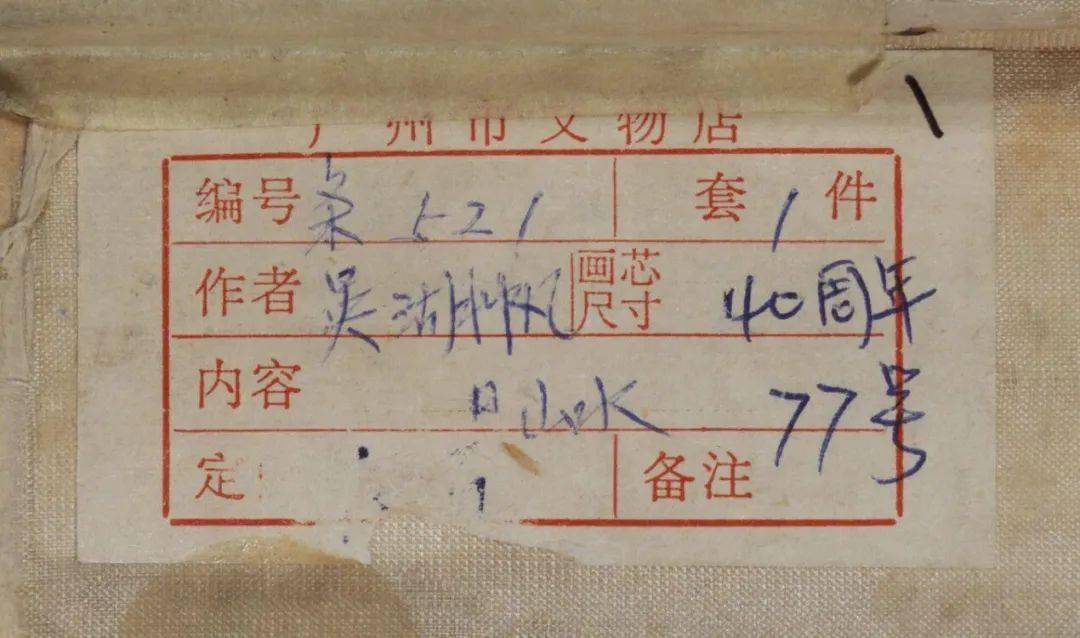 广州市文物店
编号 条 521 套 1 件
作者 吴湖帆 画芯尺寸 40周年
内容 山水 77号
定 备注